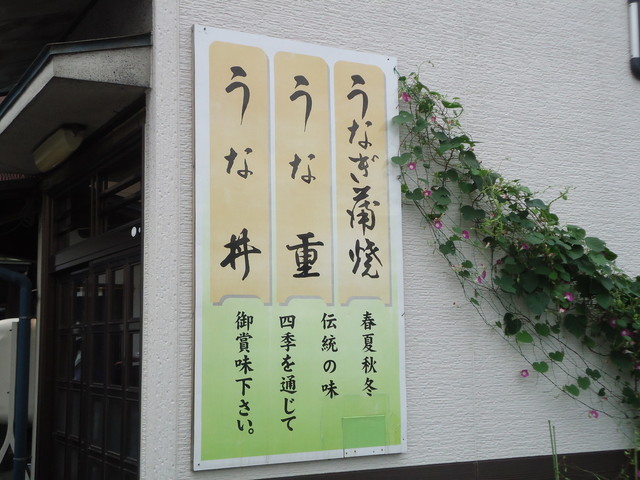 うなぎ蒲焼
うな重
うな丼
春夏秋冬
伝統の味
四季を通じて
御賞味下さい。